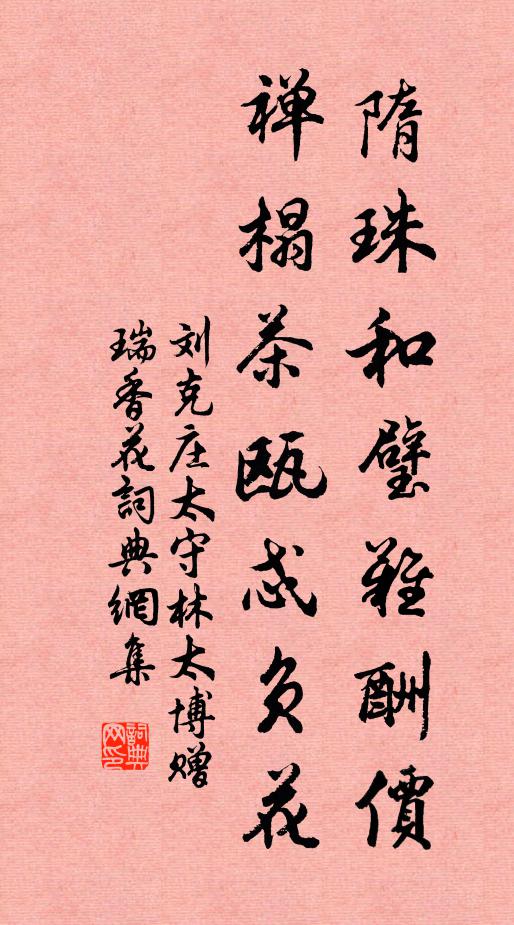 隋珠和璧難酬價
禅榻茶瓯忒负花
刘克庄太守林太博赠
瑞香花詞典網集
詞典网印